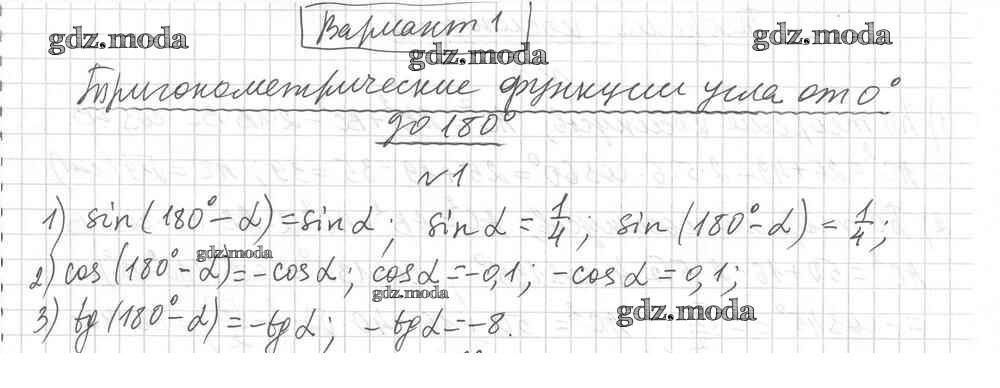 Вариант 1
gdz.moda
gdz.moda
gdz.moda
Тригонометрические функции угла от 0°
до 180°
№1
1) sin(180°-α)=sinα; sinα=1/4; sin(180°-α)=1/4;
gdz.moda
2) cos(180°-α)=-cosα; cosα=-0,1; -cosα=0,1;
gdz.moda
gdz.moda
3) tg(180°-α)=-tgα; -tgα=-8.